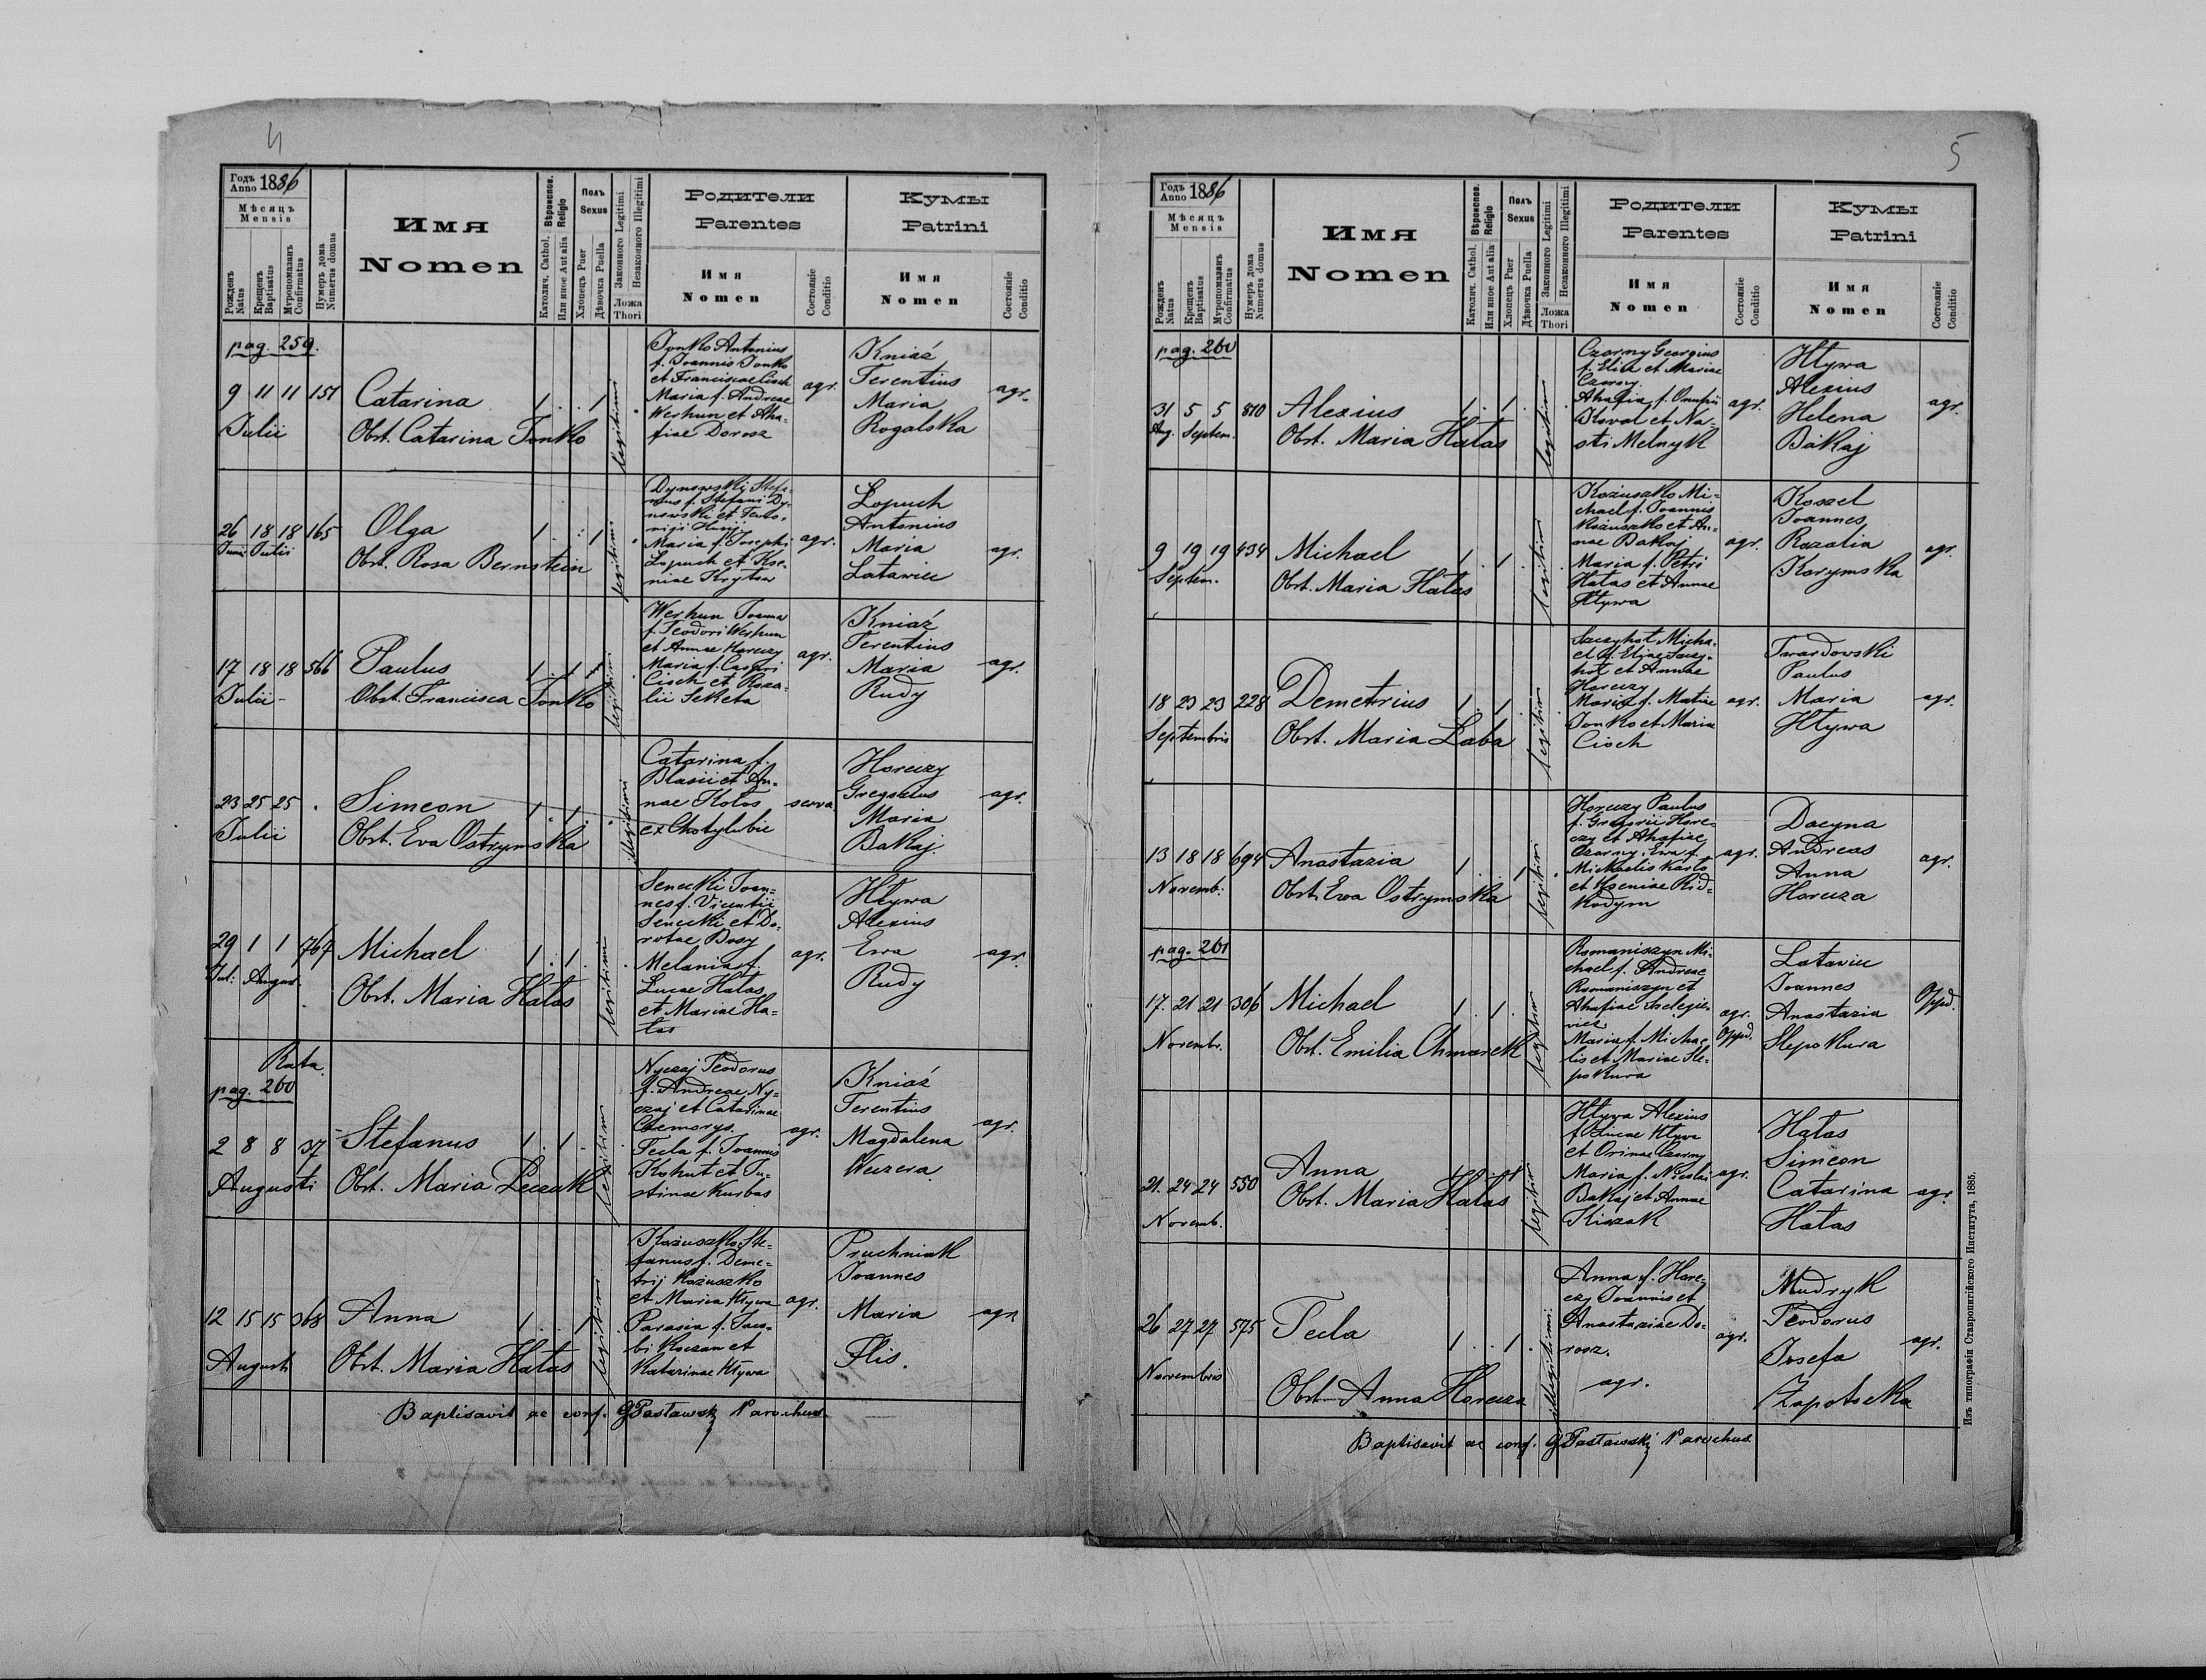 4
Годъ Anno 1886
Мѣсяцъ Mensis
Рожденъ Natus
Крещенъ Baptisatus
Мvропомазанъ Confirmatus
Нумеръ дома Numerus domus
Имя Nomen
Вѣроиспов. Religio
Католич. Cathol.
Или иное Aut alia
Полъ Sexus
Хлопецъ Puer
Дѣвочка Puella
Законного Legitimi
Незаконного Illegitimi
Ложа Thori
Родители Parentes
Имя Nomen
Состояніе Conditio
Кумы Patrini
Имя Nomen
Состояніе Conditio
pag. 259.
9 11 11 151
Julii
Catarina
Obst. Catarina Jonko
1 . . 1
legitimi
Jonko Antonius
f. Joannis Jonko
et Franciscae Cioch
Maria f. Andreae
Werhun et Aha-
fiae Dorosz
agr.
Kniaź
Terentius
Maria
Rogalska
agr.
26 18 18 165
Junii Julii
Olga
Obst. Rosa Bernstein
1 . : 1
legitimi
Dynowski Stefa-
nus f. Stefani Dy-
nowski et
Maria f. Josephi
Lopuch et Kse-
niae Krytow
agr.
Lopuch
Antonius
Maria
Latawiec
agr.
17 18 18 566
Julii -
Paulus
Obst. Francisca Jonko
1 . 1 .
legitimi
Werhun
f. Teodori Werhun
et Annae Horeczy
Maria f. Caspri
Cioch et Roza-
lii Seketa
agr.
Kniaź
Terentius
Maria
Rudy
agr.
23 25 25 .
Julii
Simeon
Obst. Eva Ostrymska
1 . 1 .
illegitimi
Catarina f.
Blasii et An-
nae Kolos
ex Chotylubie
serva
Horeczy
Gregorius
Maria
Bakaj
agr.
29 1 1 767
Jul: August.
Michael
Obst. Maria Hałas
1 . 1 .
legitimi
Senecki Joan-
nes f. Vicentii
Senecki et Do-
rotae Bosy
Melania f.
Lucae Hałas
et Mariae Ha-
łas
agr.
Hływa
Alexius
Ewa
Rudy
agr.
Ruta
pag. 260
2 8 8 37
Augusti
Stefanus
Obst. Maria Leczuk
1 . 1 .
legitimi
Nyczaj Teodorus
f. Andreae Ny-
czaj et Catarinae
Chemorys.
Tecla f. Joannis
Kohut et Ju-
stinae Kurbas
agr.
Kniaź
Terentius
Magdalena
Weczera
agr.
12 15 15 368
Augusti
Anna
Obst. Maria Hałas
1 . . 1
legitimi
Kożuszko Ste-
fanus f. Deme-
trij Kożuszko
et Maria Hływa
Parasia f. Jaco-
bi Koczan et
Katarinae Hływa
agr.
Pruchniak
Joannes
Maria
Flis.
agr.
Baptisavit ac conf. Parochus
5
Годъ Anno 1886
Мѣсяцъ Mensis
Рожденъ Natus
Крещенъ Baptisatus
Мvропомазанъ Confirmatus
Нумеръ дома Numerus domus
Имя Nomen
Вѣроиспов. Religio
Католич. Cathol.
Или иное Aut alia
Полъ Sexus
Хлопецъ Puer
Дѣвочка Puella
Законного Legitimi
Незаконного Illegitimi
Ложа Thori
Родители Parentes
Имя Nomen
Состояніе Conditio
Кумы Patrini
Имя Nomen
Состояніе Conditio
pag. 260
31 5 5 810
Aug. Septem.
Alexius
Obst. Maria Hałas
1 . 1 .
legitimi
Czorny Georgius
f. Eliae et Mariae
Czorny.
Ahafia f. Onufrii
Kowal et Na-
sti Melnyk
agr.
Hływa
Alexius
Helena
Bakaj
agr.
9 19 19 434
Septem.
Michael
Obst. Maria Hałas
1 . 1 .
legitimi
Kożuszko Mi-
chael f. Joannis
Kożuszko et An-
nae Bakaj
Maria f. Petri
Hałas et Annae
Hływa
agr.
Koszel
Joannes
Rozalia
Korymska
agr.
18 23 23 228
Septembris
Demetrius
Obst. Maria Łaba
1 . 1 .
legitimi
Saczyhot Micha-
el f. Eliae Saczy-
hot et Annae
Horeczy
Maria f. Matiae
Jonko et Maria
Cioch
agr.
Twardowski
Paulus
Maria
Hływa
agr.
13 18 18 694
Novemb:
Anastazia
Obst. Ewa Ostrymska
1 . . 1
legitimi
Horeczy Paulus
f. Gregorii Hore-
czy et Ahafiae
Czorny. Ewa f.
Michaelis Karlo
et Kseniae Rid-
kodym
agr.
Dacyna
Andreas
Anna
Horecza
agr.
pag. 261
17. 21 21 306
Novembr.
Michael
Obst. Emilia Chmarek
1 . 1 .
legitimi
Romaniszyn Mi-
chael f. Andreae
Romaniszyn et
Ahafiae
Maria f. Michae-
lis et Mariae Sle-
pokura
agr.
Oppd.
Latawiec
Joannes
Anastazia
Slepokura
Oppd.
21. 24 24 550
Novemb.
Anna
Obst. Maria Hałas
legitimi
Hływa Alexius
f. Lucae Hływa
et Orinae Czorny
Maria f. Nicolai
Bakaj et Annae
Kiszak
agr.
Hałas
Simeon
Catarina
Hałas
agr.
26 27 27 575
Novembris
Tecla
Obst. Anna Horecza
1 . . 1 .
illegitimi
Anna f. Hore-
czy Joannis et
Anastaziae Do-
rosz.
agr.
agr.
Mudryk
Teodorus
Josefa
Zapotocka
agr.
Baptisavit ac conf. Parochus
Изъ типографіи Ставропигійского Института, 1885.